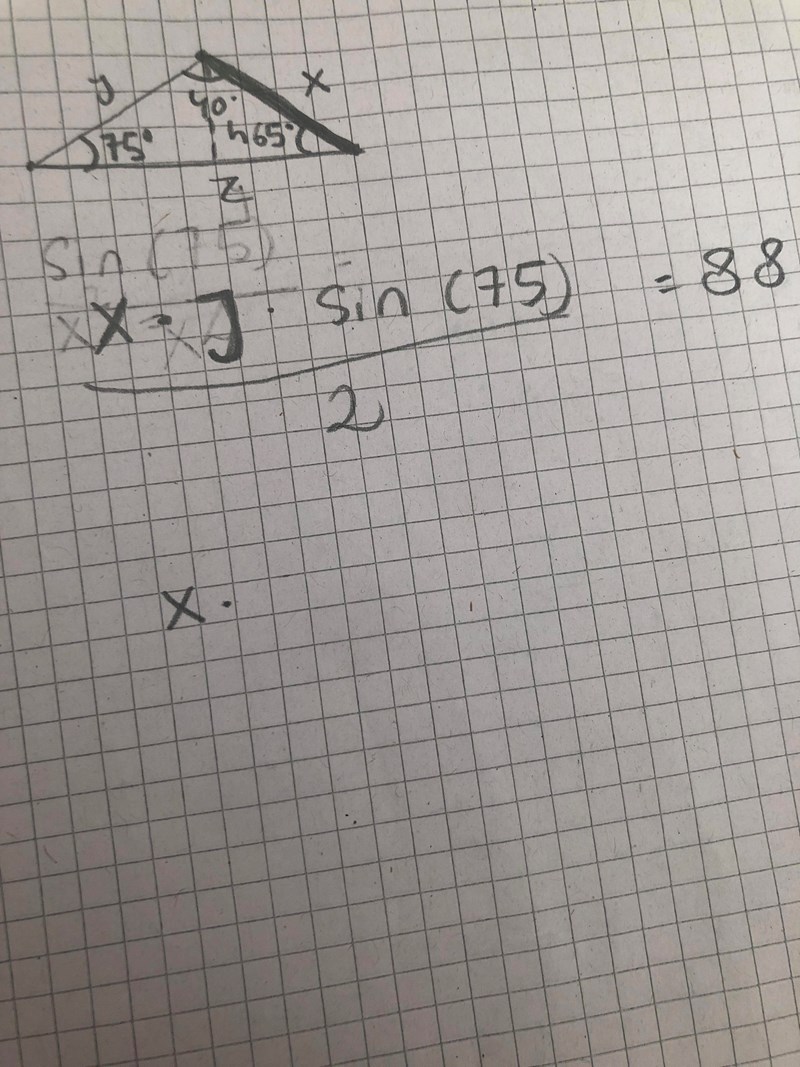 y x
40°
75° h 65°
z
sin (75)
x · y · sin (75) = 88
2
x ·